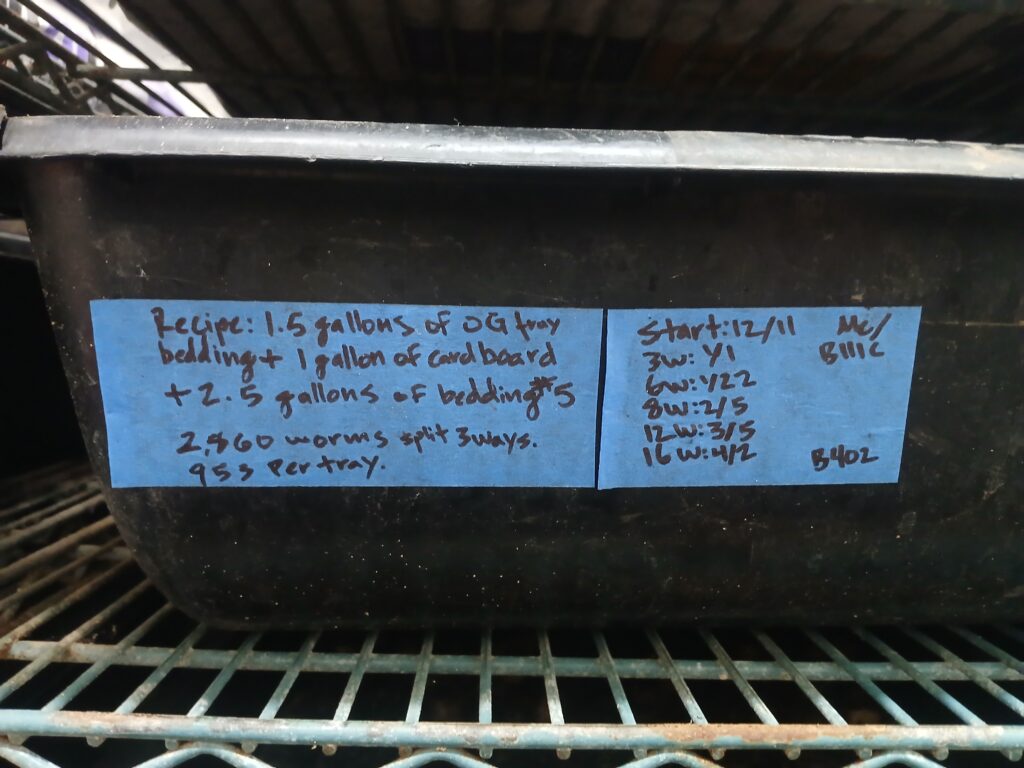 Recipe: 1.5 gallons of OG tray
bedding + 1 gallon of cardboard
+ 2.5 gallons of bedding #5
2,860 worms split 3 ways.
953 Per tray.
Start: 12/11 Mc/
B111C
3w: 1/1
6w: 1/22
8w: 2/5
12w: 3/5
16w: 4/2
B402